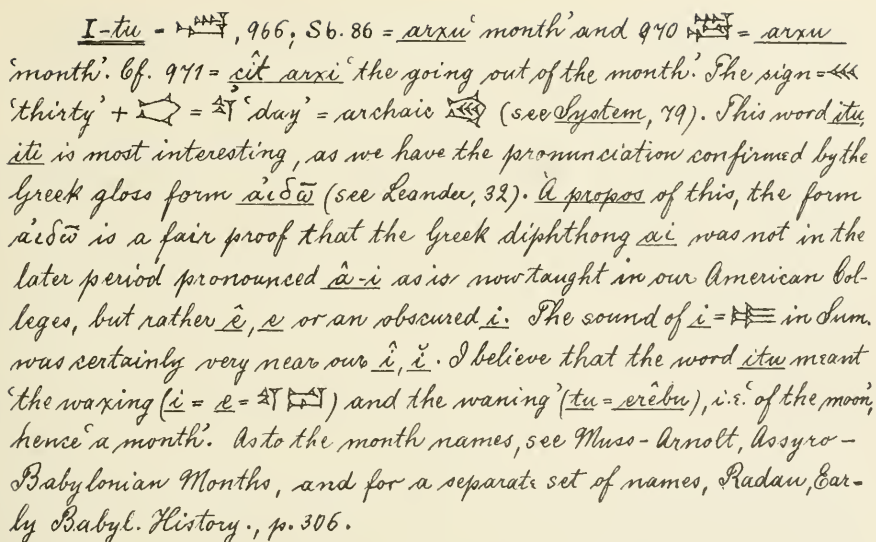 I-tu - 𒌗, 966; Sb. 86 = arxu ‘month’ and 970 𒌚 = arxu
‘month’. Cf. 971 = çît arxi ‘the going out of the month’. The sign = 𒌍
‘thirty’ + = 𒌓 ‘day’ = archaic (see System, 79). This word itu,
iti is most interesting, as we have the pronunciation confirmed by the
Greek gloss form ἀιδω̄ (see Leander, 32). À propos of this, the form
ἀιδω̄ is a fair proof that the Greek diphthong ai was not in the
later period pronounced â-i as is now taught in our American Col-
leges, but rather ê, e or an obscured i. The sound of i = 𒉌 in Sum.
was certainly very near our î, ĭ. I believe that the word itu meant
‘the waxing (i = e = 𒌓𒁺) and the waning’ (tu = erêbu), i.e. ‘of the moon’,
hence ‘a month’. As to the month names, see Muss-Arnolt, Assyro-
Babylonian Months, and for a separate set of names, Radau, Ear-
ly Babyl. History., p. 306.